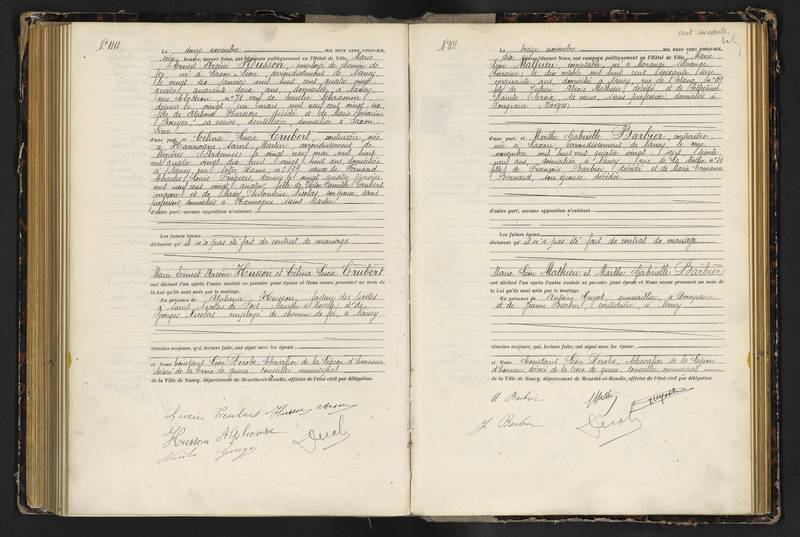 N° 1110
Le douze novembre MIL NEUF CENT VINGT-SIX,
heures, devant Nous, ont comparu publiquement en l'Hôtel de Ville, Marie
Ernest Arsène Husson, employé de chemin de
fer, né à Saxon-Sion, arrondissement de Nancy,
le vingt six janvier mil huit cent quatre vingt
quatre, quarante deux ans, domicilié à Nancy,
n° 71 veuf de Amélie Schramm,
depuis le vingt un mars mil neuf cent vingt
fils de Alphonse Husson, décédé et de Marie
sa veuve, dentellière, domiciliée à Saxon
Sion
d'une part, et Célina Lucie Trubert, couturière, née
à Hannogne Saint Martin arrondissement de
Mézières, Ardennes, le vingt neuf mai mil huit
cent quatre vingt dix huit, vingt huit ans, domiciliée
à Nancy, rue Notre Dame, n° 109 veuve de Fernand
Charles Louis depuis le vingt quatre janvier
mil neuf cent vingt quatre, fille de Trubert
et de Marie Nicolas, son épouse, sans
profession, domiciliés à Hannogne Saint Martin
d'autre part; aucune opposition n'existant
Les futurs époux
déclarent qu'il n'a pas été fait de contrat de mariage
Marie Ernest Arsène Husson et Célina Lucie Trubert
ont déclaré l'un après l'autre vouloir se prendre pour époux et Nous avons prononcé au nom de
la Loi qu'ils sont unis par le mariage.
En présence de Alphonse Husson, facteur des Postes
à Saint Nicolas de Port, Meurthe et Moselle et de
Georges Nicolas employé de chemin de fer, à Nancy
témoins majeurs, qui, lecture faite, ont signé avec les époux
et Nous Constant Léon Derobe, Chevalier de la Légion d'honneur
décoré de la Croix de guerre conseiller municipal
de la Ville de Nancy, département de Meurthe-et-Moselle, officier de l'état civil par délégation.
Lucie Trubert Husson
Husson Alphonse Derobe
Nicolas Georges
cent soixante
N° 1111
Le treize novembre MIL NEUF CENT VINGT-SIX,
dix heures, devant Nous, ont comparu publiquement en l'Hôtel de Ville, Marie
Léon Mathieu, comptable, né à
le dix octobre mil huit cent soixante
cinquante ans, domicilié à Nancy, rue de
fils de Julien Alexis Mathieu, décédé et de
Sainte Croix, sa veuve, sans profession, domiciliée à
Dompaire, Vosges,
d'une part, et Marthe Gabrielle Barbier, couturière,
née à Saxon, arrondissement de Nancy, le
novembre mil huit cent quatre vingt sept, trente
ans, domiciliée à Nancy, rue de La Mothe n° 16
fille de François Barbier, décédé et de Marie Ermance
Bernard, son épouse décédée
d'autre part; aucune opposition n'existant
Les futurs époux
déclarent qu'il n'a pas été fait de contrat de mariage
Marie Léon Mathieu et Marthe Gabrielle Barbier
ont déclaré l'un après l'autre vouloir se prendre pour époux et Nous avons prononcé au nom de
la Loi qu'ils sont unis par le mariage.
En présence de Antoine Guyot, quincaillier, à Dompaire
et de Jeanne Barbier, couturière, à Nancy
témoins majeurs, qui, lecture faite, ont signé avec les époux
et Nous Constant Léon Derobe, Chevalier de la Légion
d'honneur, décoré de la Croix de guerre, conseiller municipal
de la Ville de Nancy, département de Meurthe-et-Moselle, officier de l'état civil par délégation.
M Barbier
J Barbier Derobe